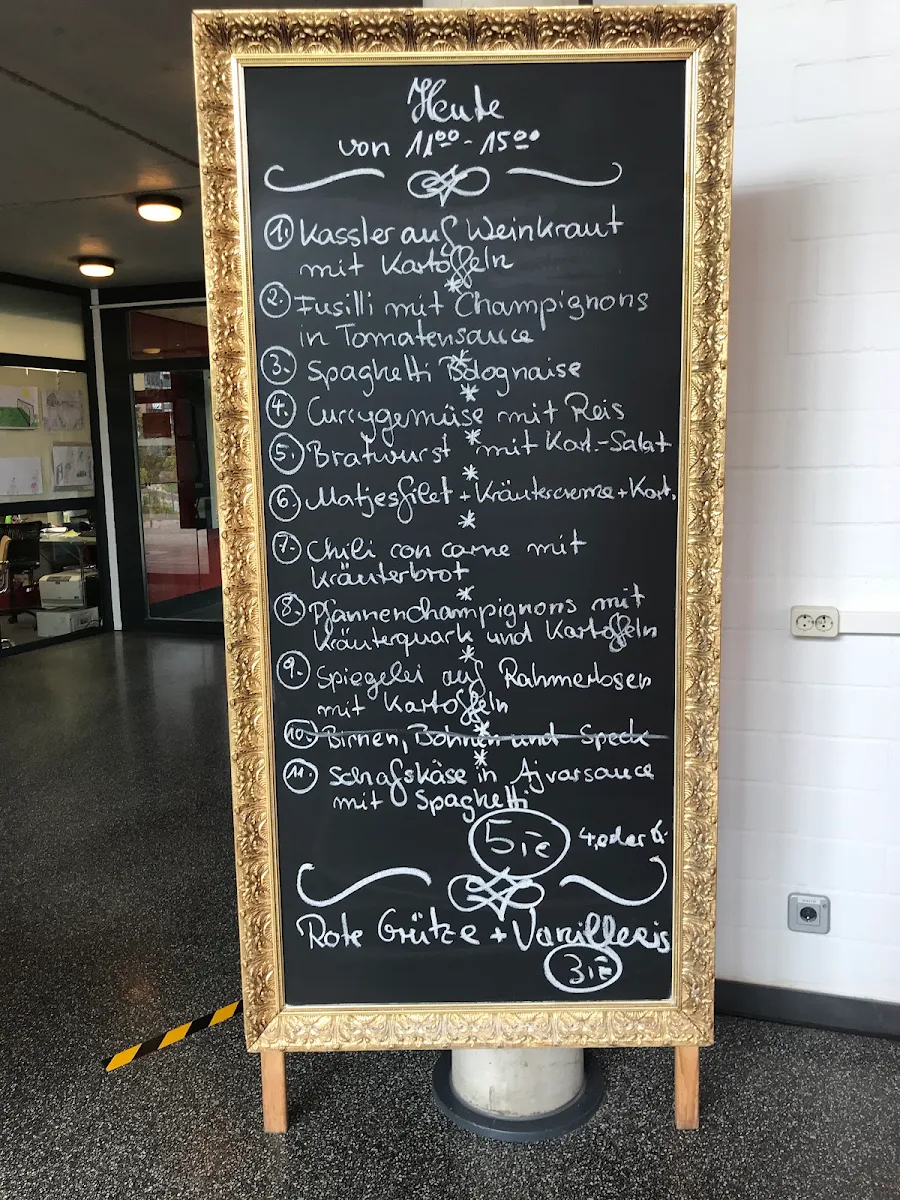 Heute
von 11⁰⁰ - 15⁰⁰
1. Kassler auf Weinkraut
mit Kartoffeln
*
2. Fusilli mit Champignons
in Tomatensauce
*
3. Spaghetti Bolognaise
*
4. Currygemüse mit Reis
*
5. Bratwurst mit Kart.-Salat
*
6. Matjesfilet + Kräutercreme + Kart.
*
7. Chili con carne mit
Kräuterbrot
*
8. Pfannenchampignons mit
Kräuterquark und Kartoffeln
*
9. Spiegelei auf Rahmerbsen
mit Kartoffeln
*
10. Birnen, Bohnen und Speck
*
11. Schafskäse in Ajvarsauce
mit Spaghetti
5,- € 4. oder
Rote Grütze + Vanilleeis
3,- €